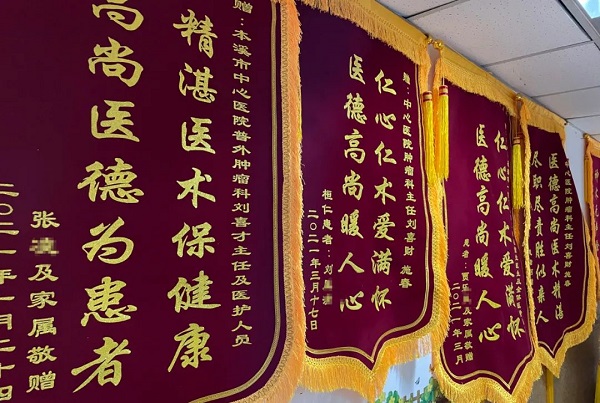 赠：本溪市中心医院普外肿瘤科刘喜才主任及医护人员
精湛医术保健康
高尚医德为患者
张 及家属敬赠
二〇二一年一月二十四
赠：中心医院肿瘤科主任刘喜财 施春
仁心仁术爱满怀
医德高尚暖人心
桓仁患者：刘
二〇二一年三月十七日
中心医院肿瘤科主任刘喜
仁心仁术爱满怀
医德高尚暖人心
及家属敬赠
二〇二一年三月
中心医院肿瘤科刘喜财 施春
医德高尚医术精湛
尽职尽责胜似亲人